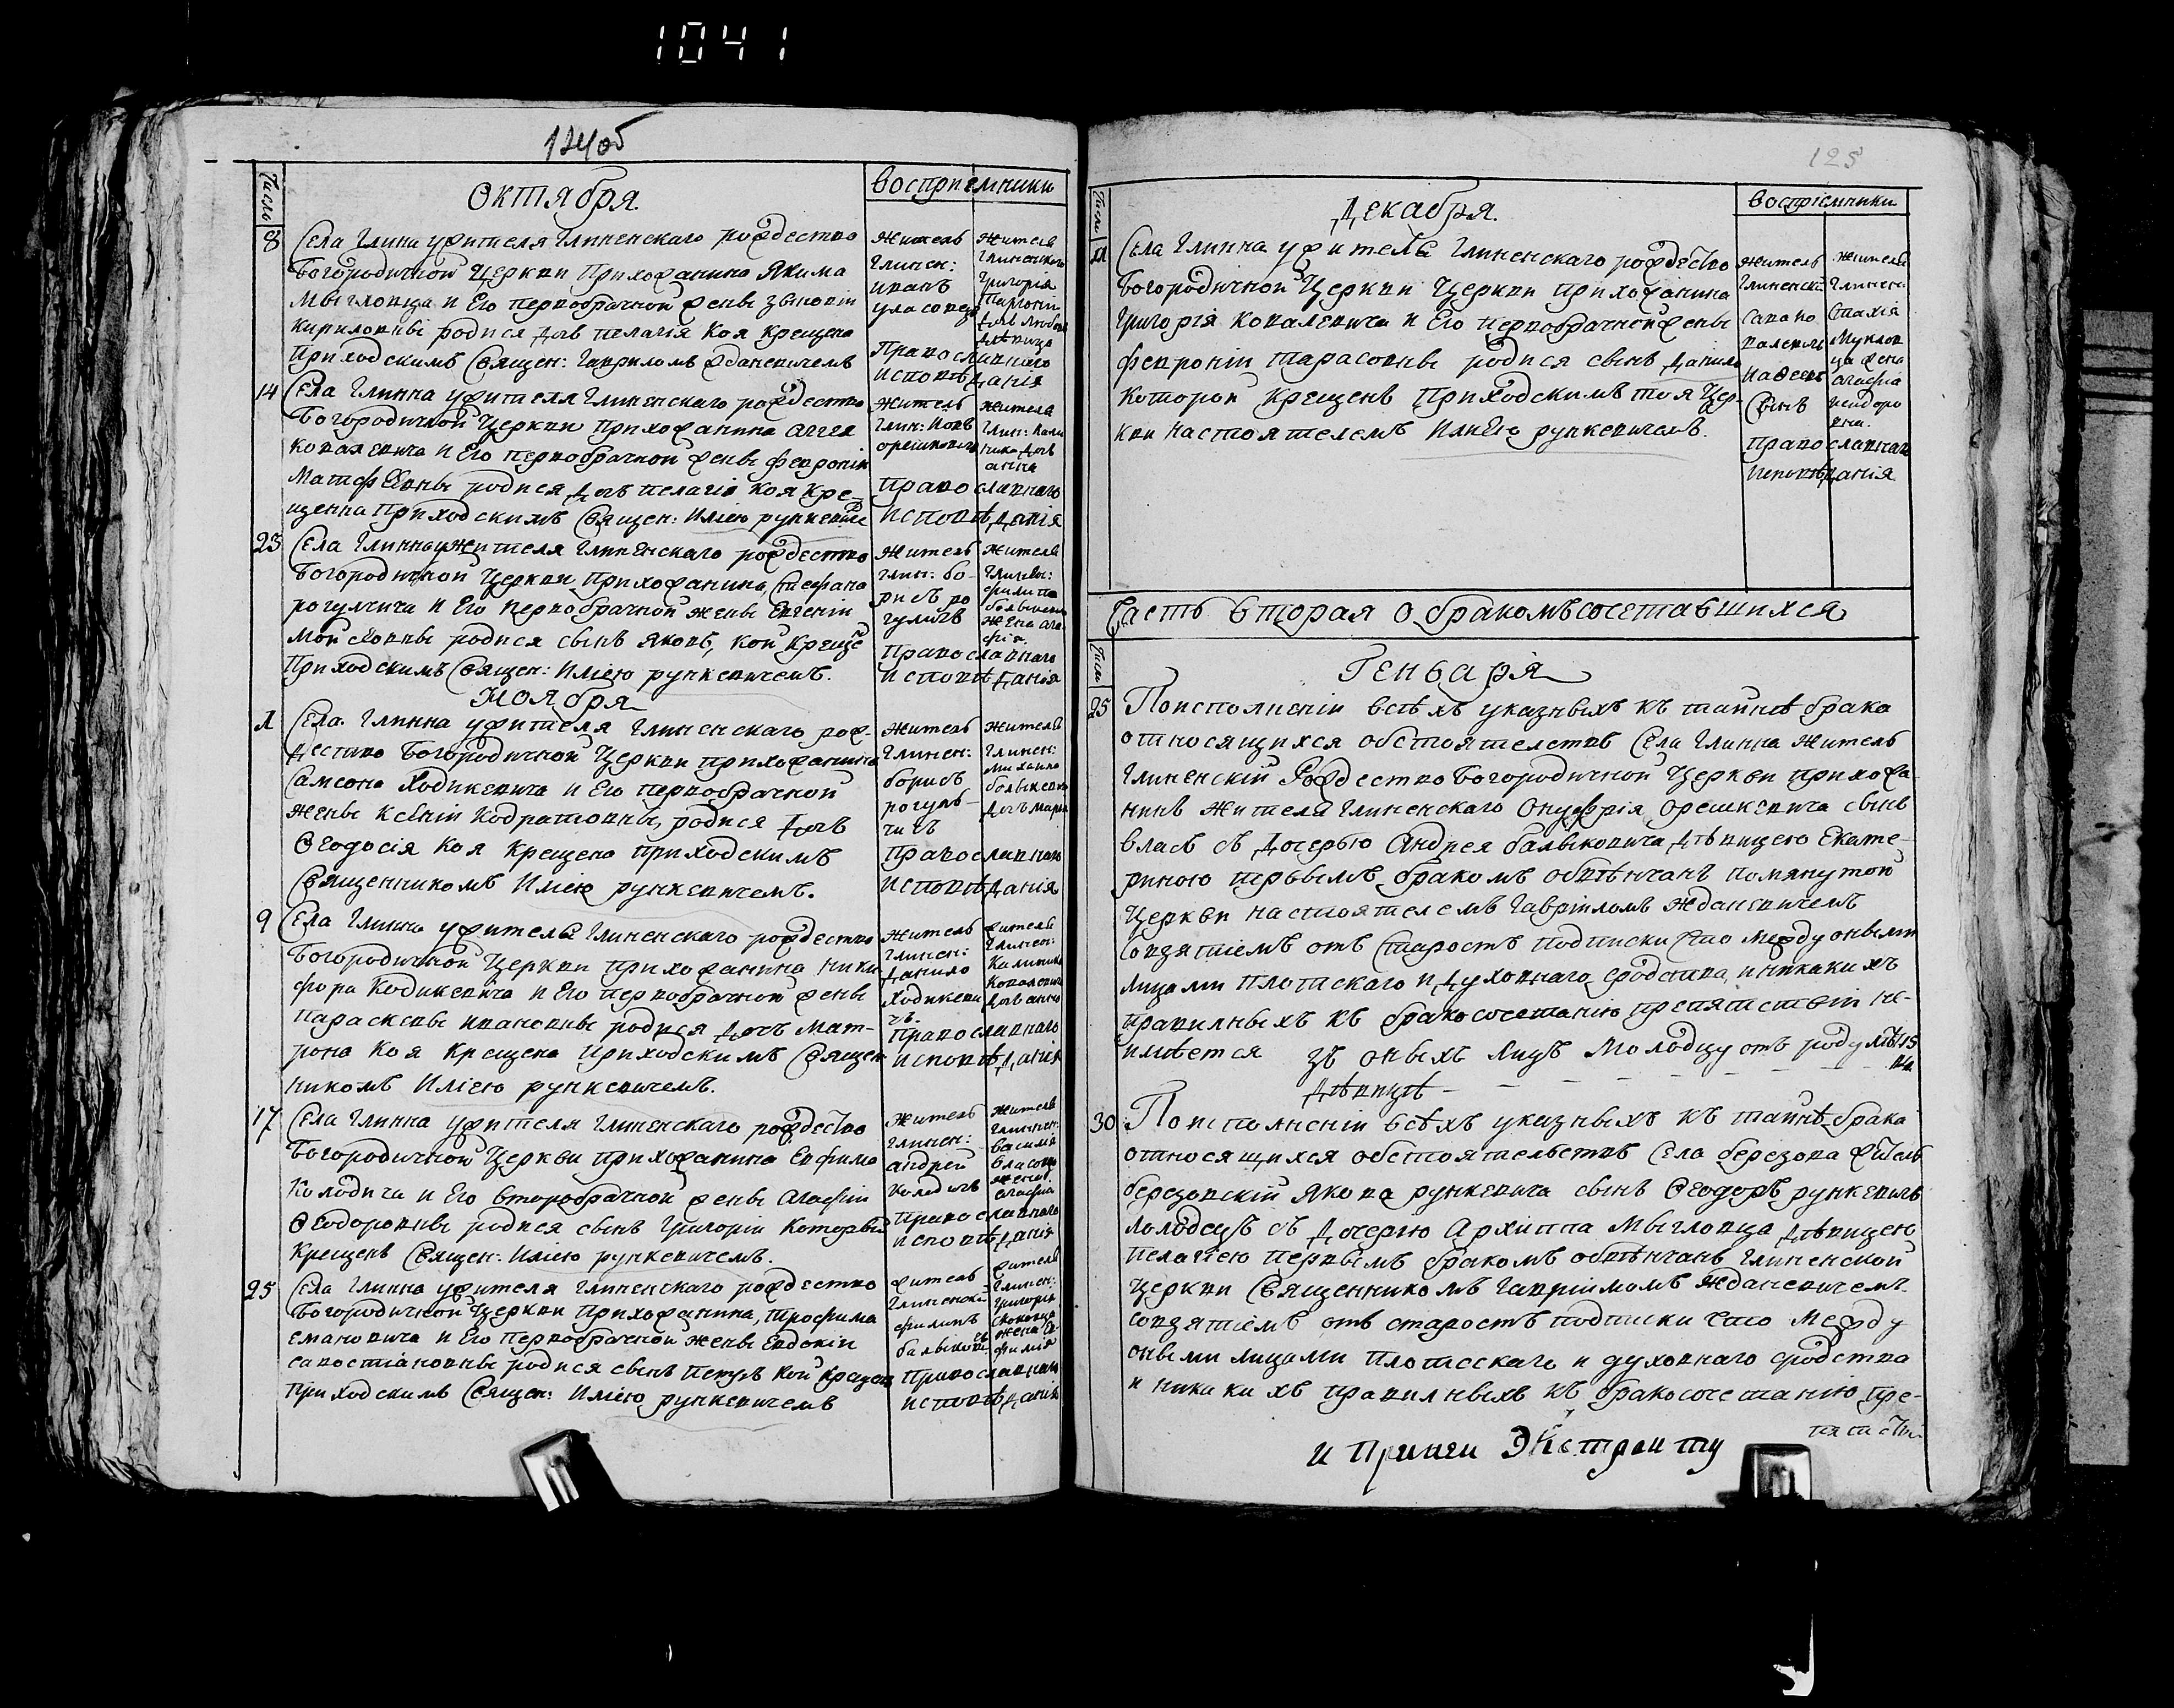 1041
124об
Число
Октября.
воспріемники
8
Села Глина ужителя Глиненскаго рождество
Богородичной Церкви Прихожанина Якима
Мыгловца и Его первобрачной жены Зѣновіи
Кириловны родися дочь пелагія Коя Крещена
Приходскимъ Священ: Гавриломъ Жданевичемъ
Житель
Глинен:
иванъ
уласовец
Жителя
Глиненскаго
Григорія
дочь
дѣвица
Православнаго
исповѣданія
14
Села Глинна ужителя Глиненскаго рождество
Богородичной Церкви Прихожанина
Ковалевича и Его первобрачной жены февроніи
Матфѣевны родися дочь пелагія Коя Кре-
щенна Приходскимъ Священ: Иліею рункевиче
Житель
Глин: Іовъ
орешкович
Жителя
Глин:
дочь
анна
Православнаго
исповѣданія
23
Села Глинна ужителя Глиненскаго рождество
Богородичной Церкви Прихожанина, Стефана
рогулчича и Его первобрачной жены Евгеніи
Мойсеовны родися сынъ Яковъ, кой Креще
Приходскимъ Священ: Иліею рункевичемъ.
Житель
Глин: бо-
рисъ ро
гуличъ
Жителя
Глинен:
филипа
жена ага-
фія.
Православнаго
исповѣданія
Ноября
1
Села Глинна ужителя Глиненскаго рож-
дество Богородичной Церкви прихожанина
Самсона Ходикевича и Его первобрачной
жены Ксеніи Кодратовны, родися дочь
Ѳеодосія Коя Крещена приходскимъ
Священникомъ Иліею рункевичемъ.
Житель
Глинен:
борисъ
рогуль-
чичъ
Жителя
Глинен:
Михаила
дочь мари
Православнаго
исповѣданія
9
Села Глинна ужителя Глиненскаго рождество
Богородичной Церкви прихожанина Ники
фора Кодикевича и Его первобрачной жены
параскевы ивановны родися дочь Мат-
рона Коя Крещена приходскимъ Священ
никомъ Иліею рункевичемъ.
Житель
Глинен:
данило
Ходикеви
чъ.
жителя
Глинен:
Калиника
Ковалевича
дочь анна
Православнаго
исповѣданія
17
Села Глинна ужителя Глиненскаго рождество
Богородичной Церкви прихожанина Евфима
Колодича и Его второбрачной жены Агафіи
Ѳеодоровны родися сынъ Григорій Который
Крещенъ Священ: Иліею рункевичемъ.
Житель
Глинен:
андрей
колодичъ
Жителя
Глинен:
василія
жена
агафия
Православнаго
исповѣданія
25
Села Глинна ужителя Глиненскаго рождество
Богородичной Церкви прихожанина, трофима
емановича и Его первобрачной жены Евдокіи
савостіановны родися сынъ петръ Кой Крещен
Приходскимъ Священ: Иліею рункевичемъ
житель
Глиненскі
филипъ
жителя
Глинен:
григорія
жена
Православнаго
исповѣданія
125
Число
Декабря.
воспріемники
Села Глинна ужителя Глиненскаго рождество
Богородичной Церкви Церкви прихожанина
Григорія Ковалевича и Его первобрачной жены
февроніи тарасовны родися сынъ данило
Которой Крещенъ Приходскимъ тоя Цер-
кви Настоятелемъ Иліею рункевичемъ.
житель
Глиненскі
Сынъ
Жителя
Глинен:
жена
агафіа
Православнаго
Исповѣданія
Часть вторая о бракомъ сочетавшихся
Число
Генваря
25
По исполненіи всѣхъ указныхъ къ тайнѣ брака
относящихся обстоятелствъ Села Глинна Житель
Глиненскій Рождество Богородичной Церкви прихожа-
нинъ жителя Глиненскаго Онуфрія Орешкевича сынъ
Власъ съ дочерью Андрея балыковича дѣвицею Екате-
риною первымъ бракомъ обвѣнчанъ помянутой
Церкви настоятелемъ Гавріиломъ Жданевичемъ
Совзятіемъ отъ Старостъ подписки Что между оными
лицами плотскаго и духовнаго сродства, и никакихъ
правилныхъ къ бракосочетанію препятствій не-
имѣется зъ оныхъ лицъ Молодцу отъ роду лѣтъ
дѣвицѣ
30
По исполненіи всѣхъ указныхъ къ тайнѣ брака
относящихся обстоятельствъ Села березова житель
березовскій Якова рункевича сынъ Ѳеодоръ рункевичъ
молодецъ съ дочерію Архиппа Мыгловца дѣвицею
пелагіею первымъ бракомъ обвѣнчанъ Глиненской
Церкви Священникомъ Гавріиломъ Жданевичемъ
совзятіемъ отъ старостъ подписки Что Между
оными лицами плотсскаго и духовнаго сродства
и никакихъ правилныхъ къ бракосочетанію пре-
пятствій